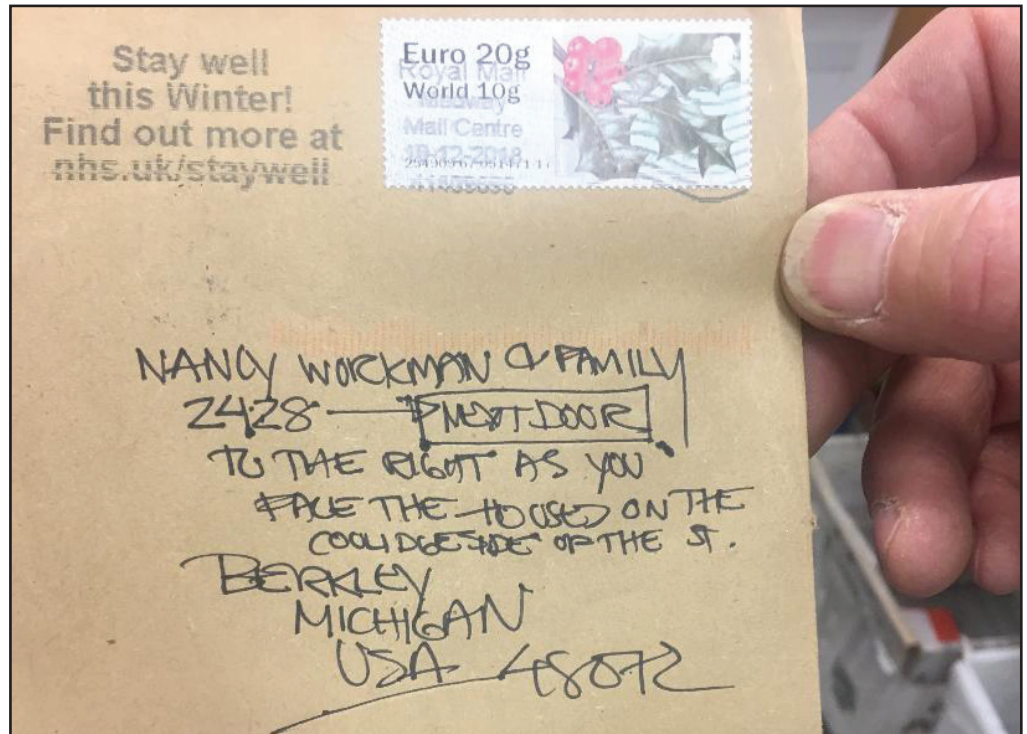 Stay well
this Winter!
Find out more at
nhs.uk/staywell
Euro 20g
Royal Mail
World 10g
Medway
Mail Centre
18-12-2018
NANCY WORKMAN & FAMILY
2428 → NEXT DOOR
TO THE RIGHT AS YOU
FACE THE HOUSE ON THE
COOLIDGE SIDE OF THE ST.
BERKLEY
MICHIGAN
USA 48072